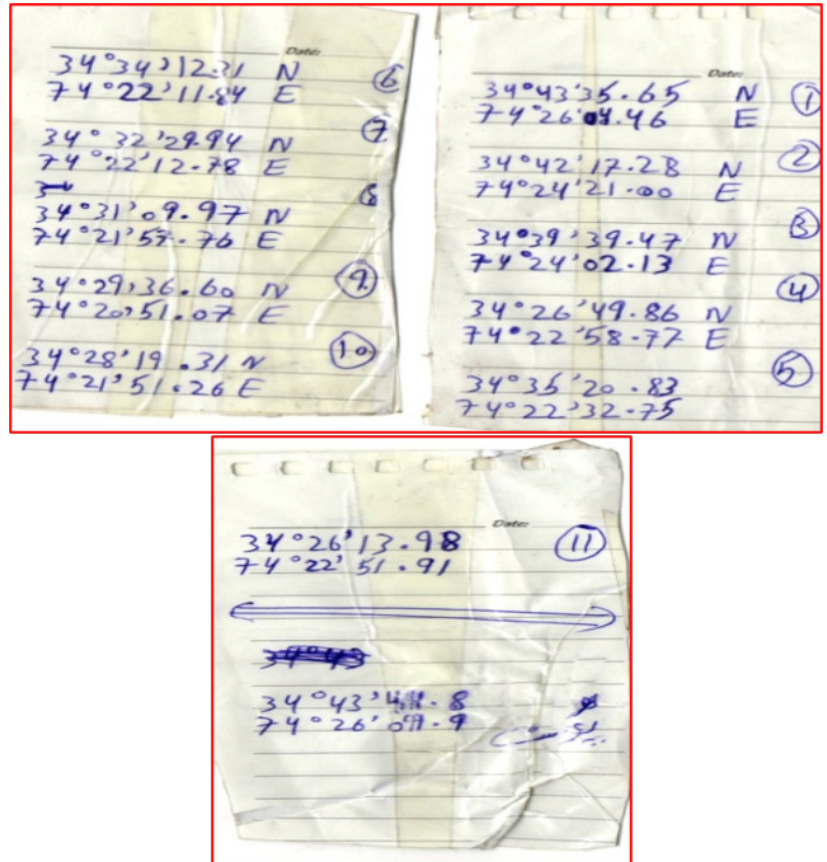 Date:
34°34'12.31 N
74°22'11.84 E
⑥
34°32'29.94 N
74°22'12.78 E
⑦
34°31'09.97 N
74°21'57.76 E
⑧
34°29'36.60 N
74°20'51.07 E
⑨
34°28'19.31 N
74°21'51.26 E
⑩
Date:
34°43'35.65 N
74°26'04.46 E
①
34°42'17.28 N
74°24'21.00 E
②
34°39'39.47 N
74°24'02.13 E
③
34°26'49.86 N
74°22'58.77 E
④
34°35'20.83
74°22'32.75
⑤
Date:
34°26'13.98
74°22'51.91
⑪
34°43
34°43'
74°26'